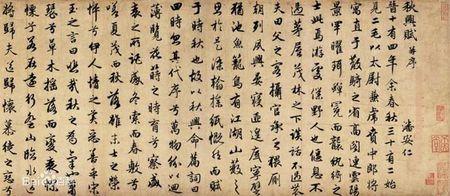 秋興賦 并序
潘安仁
晉十有四年余春秋三十有二始
見二毛以太尉兼虎賁中郎將
寓直于散騎之省高閣連雲陽
景罕曜珥蟬冕而襲紈綺之
士此焉游處僕野人也偃息不
過茅屋茂林之下談話不過農
夫田父之客攝官承乏猥厠
朝列夙興晏寢匪遑底寧譬
猶池魚籠鳥有江湖山藪之
思於是染翰操紙慨然而賦
于時秋也故以秋興命篇詞曰
四時忽其代序兮萬物紛以迴
薄覽花蒔之時育兮察盛
衰之所託感冬索而春敷兮
嗟夏茂而秋落雖末士之榮
悴兮伊人情之美惡善乎宋
玉之言曰悲哉秋之為氣也蕭
瑟兮草木搖落而變衰憀
慄兮若在遠行登山臨水送
將歸夫送歸懷慕徒之戀兮
Baidu百科